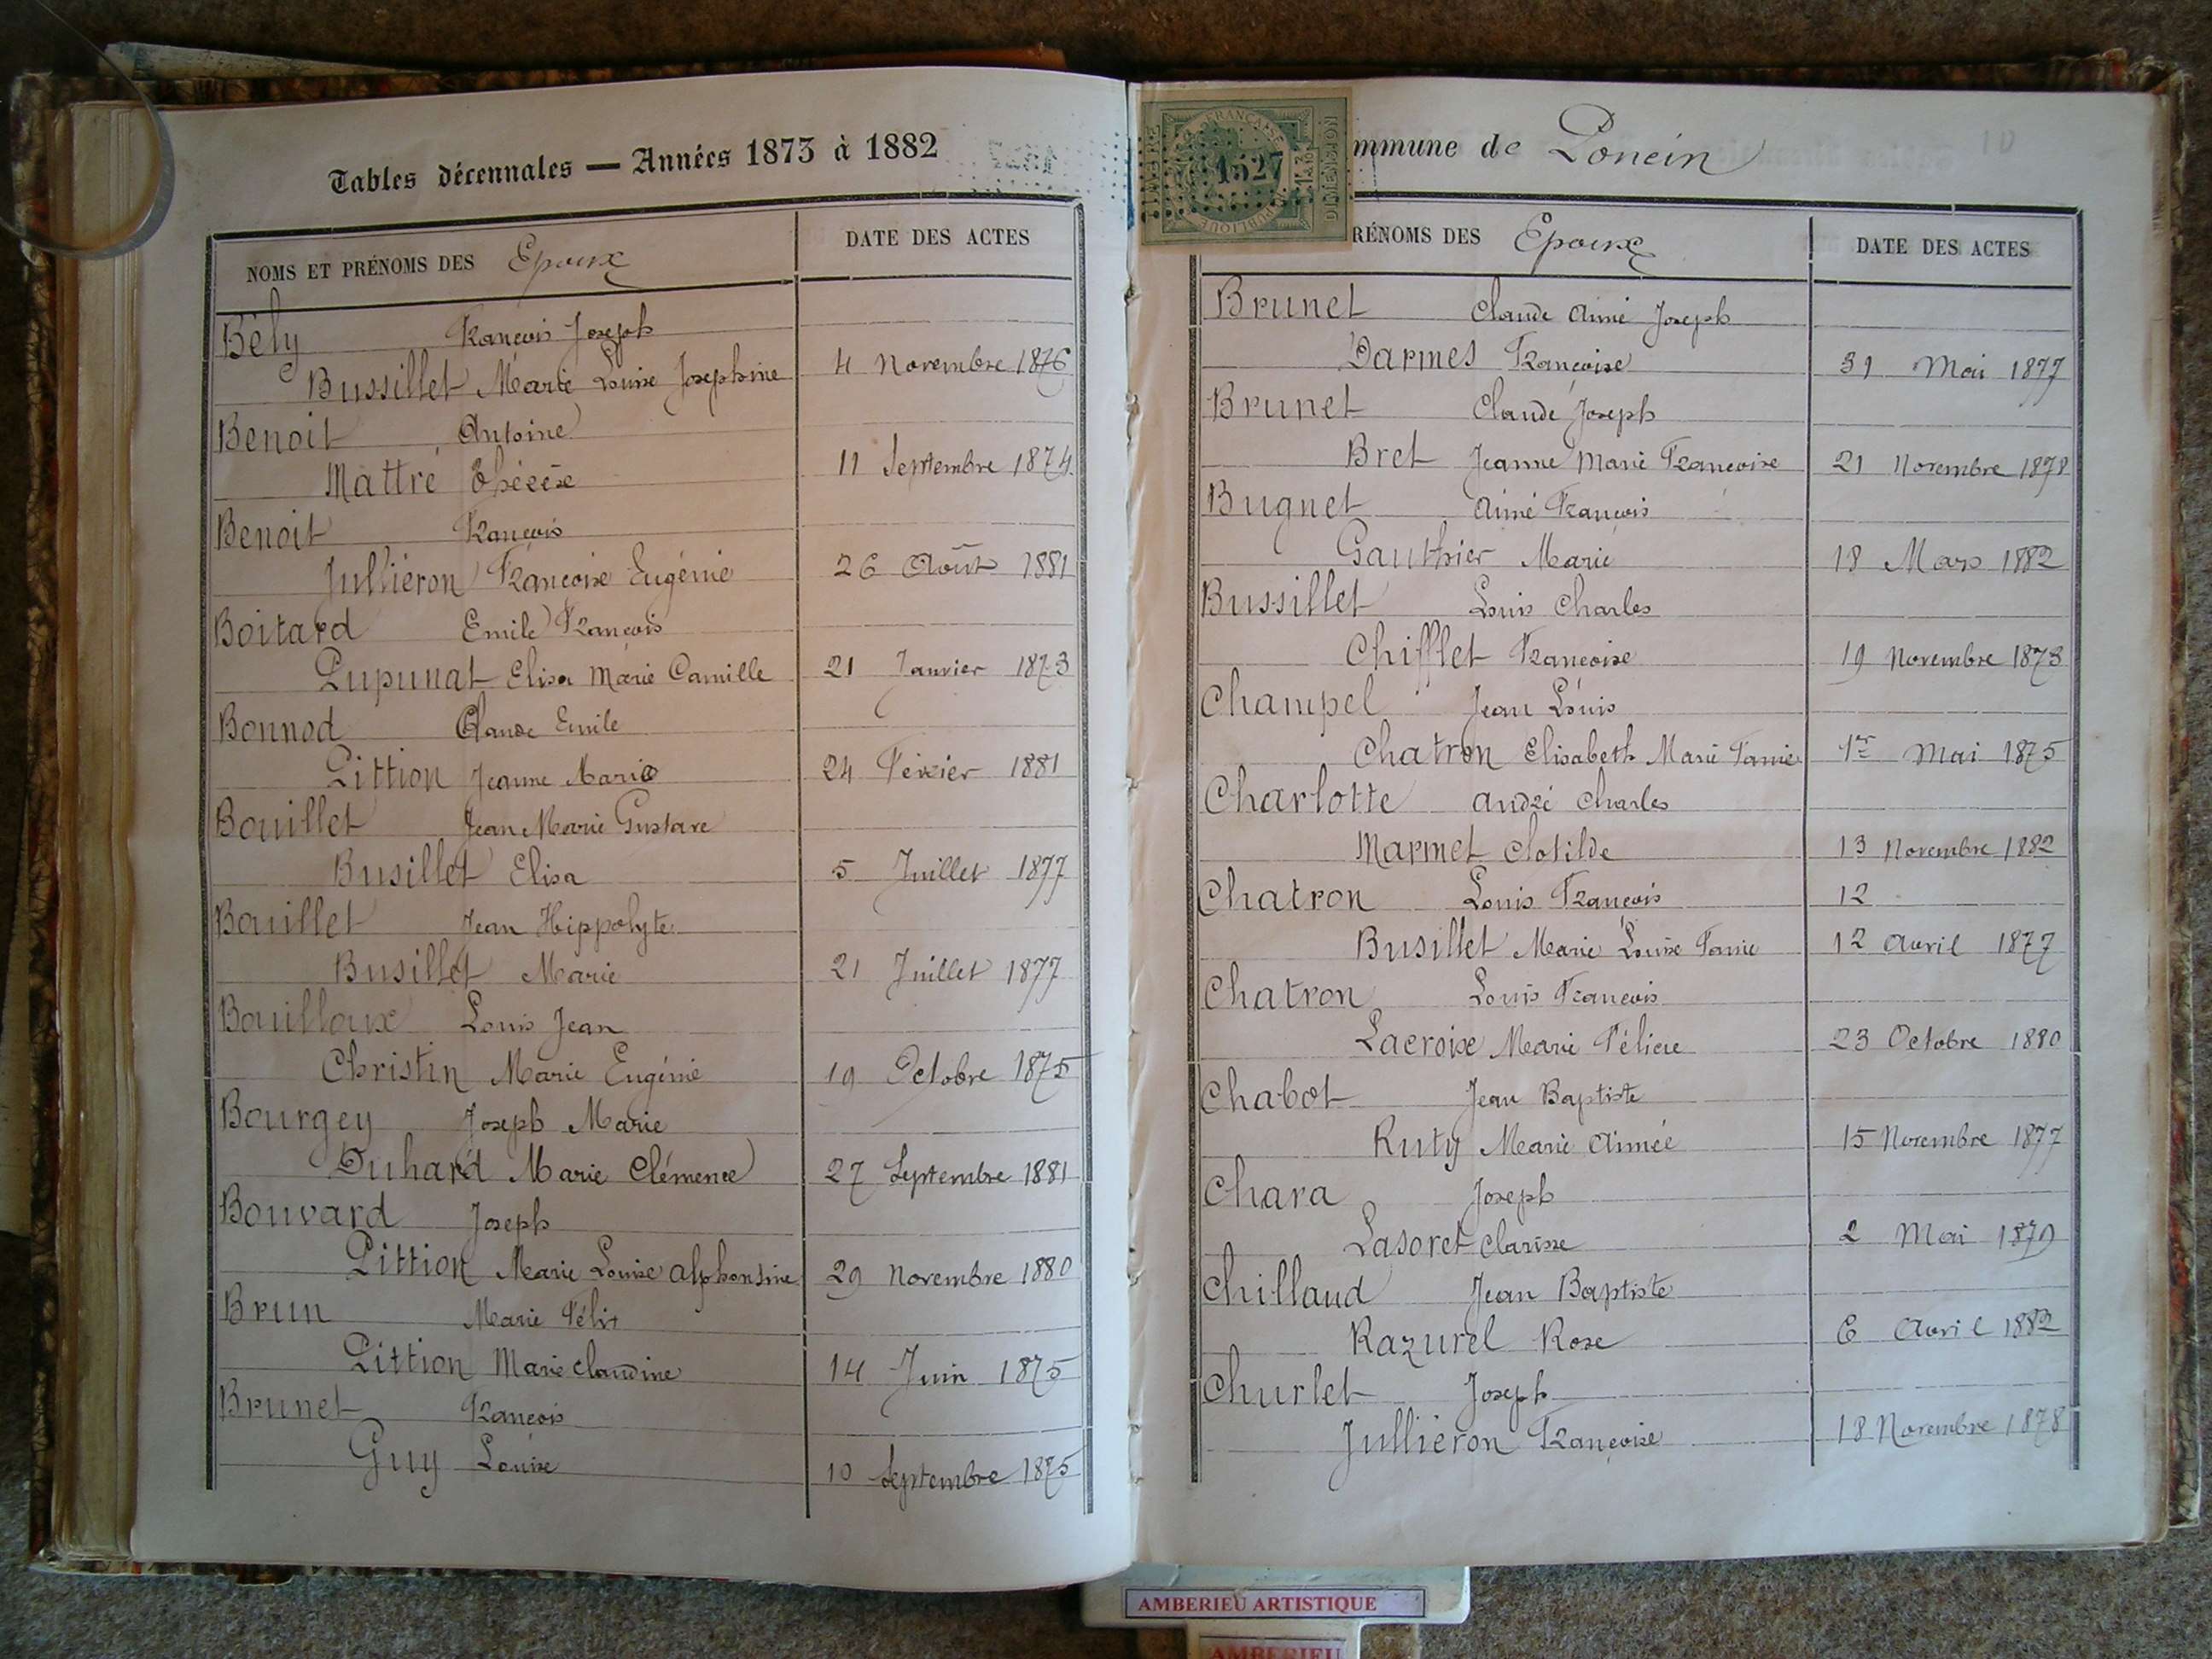 Tables décennales — Années 1873 à 1882
NOMS ET PRÉNOMS DES Epoux
DATE DES ACTES
Bély François Joseph
Bussillet Marie Louise Josephine 4 Novembre 1876
Benoit Antoine
Mattré Thérèse 11 Septembre 1874
Benoit François
Jullieron Françoise Eugénie 26 Août 1881
Boitard Emile François
Pupunat Elisa Marie Camille 21 Janvier 1873
Bonnod Claude Emile
Pittion Jeanne Marie 24 Février 1881
Bouillet Jean Marie Gustave
Busillet Elisa 5 Juillet 1877
Bouillet Jean Hippolyte
Busillet Marie 21 Juillet 1877
Bouilloux Louis Jean
Christin Marie Eugénie 19 Octobre 1875
Bourgey Joseph Marie
Duhard Marie Clémence 27 Septembre 1881
Bouvard Joseph
Pittion Marie Louise Alphonsine 29 Novembre 1880
Brun Marie Félix
Pittion Marie Claudine 14 Juin 1875
Brunet François
Guy Louise 10 Septembre 1875
mmune de Poncin
10
FRANÇAISE
TIMBRE
1527
DIMENSION
PUBLIQUE
RÉNOMS DES Epoux
DATE DES ACTES
Brunet Claude Aimé Joseph
Darmes Françoise 31 Mai 1877
Brunet Claude Joseph
Bret Jeanne Marie Françoise 21 Novembre 1878
Bugnet Aimé François
Gauthier Marie 18 Mars 1882
Bussillet Louis Charles
Chifflet Françoise 19 Novembre 1873
Champel Jean Louis
Chatron Elisabeth Marie Fanie 1er Mai 1875
Charlotte André Charles
Marmet Clotilde 13 Novembre 1882
Chatron Louis François 12
Busillet Marie Louise Fanie 12 Avril 1877
Chatron Louis François
Lacroix Marie Félicie 23 Octobre 1880
Chabot Jean Baptiste
Ruty Marie Aimée 15 Novembre 1877
Chara Joseph
Lasoret Clarisse 2 Mai 1879
Chillaud Jean Baptiste
Razurel Rose 6 Avril 1882
Churlet Joseph
Jullieron Françoise 18 Novembre 1878
AMBERIEU ARTISTIQUE
AMBERIEU